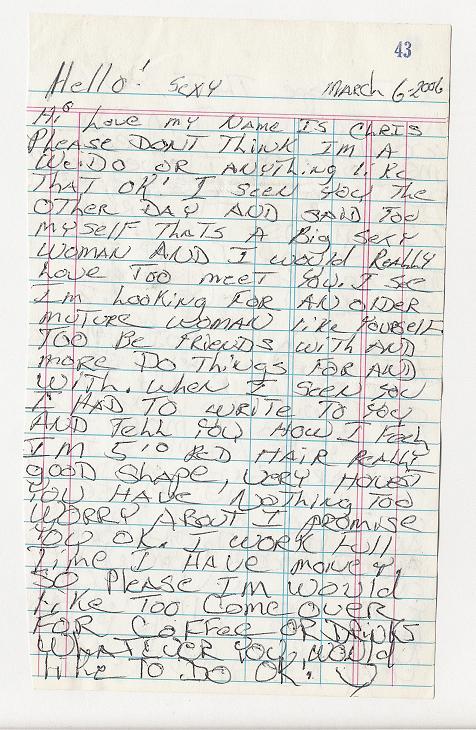 43
Hello! Sexy March 6-2006
Hi Love my Name is CHRIS
Please DON'T Think I'm A
WeiDO OR ANYthing Like
That OK! I seen you The
OTHER DAY AND SAID TOO
myself Thats A Big Sexy
Woman AND I would Really
Love Too meet you. I see
I'm Looking FOR AN OlDER
muture woman like YOURSElf
TOO Be friends with AND
more DO Things FOR AND
With. when I seen you
I HAD TO write TO you
AND Tell You How I feel
I'm 5'10 RED HAIR Really
good Shape, very HONEST
You HAVE NOThing TOO
WORRY About I promise
you OK. I work full
Time I HAVE money,
SO Please I'm would
Like Too Come Over
FOR Coffee OR Drinks
Whatever you would
like To Do OK!